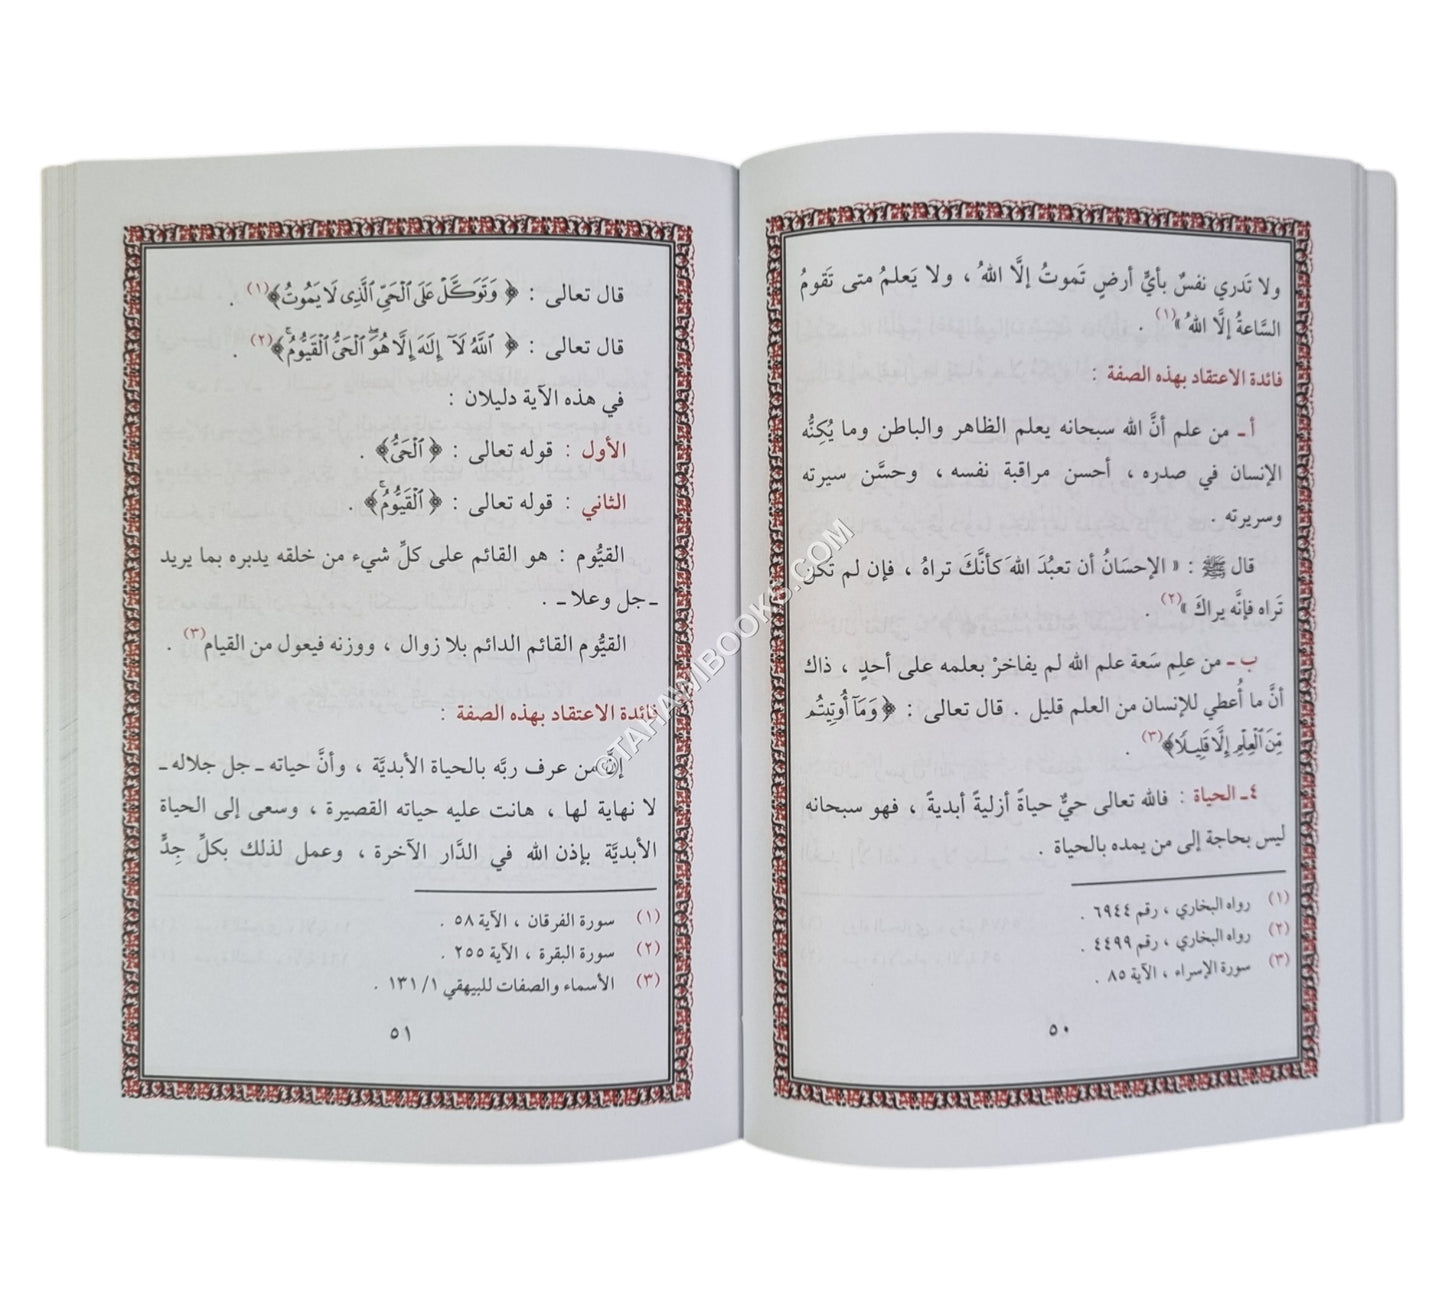 ولا تَدري نفسٌ بأيِّ أرضٍ تَموتُ إلَّا اللهُ ، ولا يَعلمُ متى تَقومُ
السَّاعةُ إلَّا اللهُ »(١) .
فائدة الاعتقاد بهذه الصفة :
أ ـ من علم أنَّ الله سبحانه يعلم الظاهر والباطن وما يُكِنُّه
الإنسان في صدره ، أحسن مراقبة نفسه ، وحسَّن سيرته
وسريرته .
قال ﷺ : « الإحسَانُ أن تعبُدَ اللهَ كأنَّكَ تراهُ ، فإن لم تكن
تَراه فإنَّه يراكَ »(٢) .
ب ـ من علِم سَعة علم الله لم يفاخرْ بعلمه على أحدٍ ، ذاك
أنَّ ما أُعطي للإنسان من العلم قليل . قال تعالى : ﴿ وَمَآ أُوتِيتُم
مِّنَ ٱلْعِلْمِ إِلَّا قَلِيلًا﴾(٣) .
٤ ـ الحياة : فالله تعالى حيٌّ حياةً أزليةً أبديةً ، فهو سبحانه
ليس بحاجة إلى من يمده بالحياة .
(١) رواه البخاري ، رقم ٦٩٤٤ .
(٢) رواه البخاري ، رقم ٤٤٩٩ .
(٣) سورة الإسراء ، الآية ٨٥ .
٥٠
قال تعالى : ﴿ وَتَوَكَّلْ عَلَى ٱلْحَىِّ ٱلَّذِى لَا يَمُوتُ﴾(١) .
قال تعالى : ﴿ ٱللَّهُ لَآ إِلَٰهَ إِلَّا هُوَ ٱلْحَىُّ ٱلْقَيُّومُ ۚ﴾(٢) .
في هذه الآية دليلان :
الأول : قوله تعالى : ﴿ ٱلْحَىُّ﴾ .
الثاني : قوله تعالى : ﴿ ٱلْقَيُّومُ ۚ﴾ .
القيُّوم : هو القائم على كلِّ شيء من خلقه يدبره بما يريد
ـ جل وعلا ـ .
القيُّوم القائم الدائم بلا زوال ، ووزنه فيعول من القيام(٣) .
فائدة الاعتقاد بهذه الصفة :
إنَّ من عرف ربَّه بالحياة الأبديَّة ، وأنَّ حياته ـ جل جلاله ـ
لا نهاية لها ، هانت عليه حياته القصيرة ، وسعى إلى الحياة
الأبديَّة بإذن الله في الدَّار الآخرة ، وعمل لذلك بكلِّ جِدٍّ
(١) سورة الفرقان ، الآية ٥٨ .
(٢) سورة البقرة ، الآية ٢٥٥ .
(٣) الأسماء والصفات للبيهقي ١/ ١٣١ .
٥١
©TAHAWIBOOKS.COM